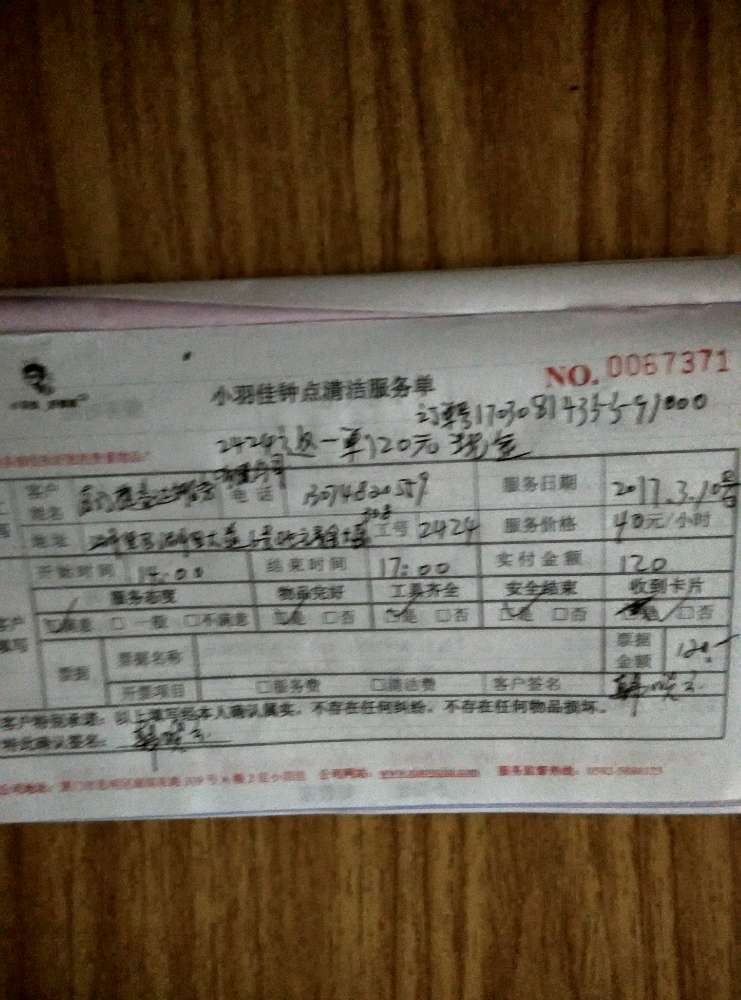 小羽佳钟点清洁服务单
NO. 0067371
订单号17030814355591000
2424 这一单120元现金
客户姓名 电话 13074820559 服务日期 2017.3.10号
地址 工号 2424 服务价格 40元/小时
开始时间 14:00 结束时间 17:00 实付金额 120
服务态度 物品完好 工具齐全 安全结束 收到卡片
满意 一般 不满意 是 否 是 否 是 否 是 否
票据 票据名称 票据金额 120.-
开票项目 服务费 清洁费 客户签名
客户特别承诺：以上填写经本人确认属实，不存在任何纠纷，不存在任何物品损坏。
特此确认签名：
公司地址： 公司网站： 服务监督热线：